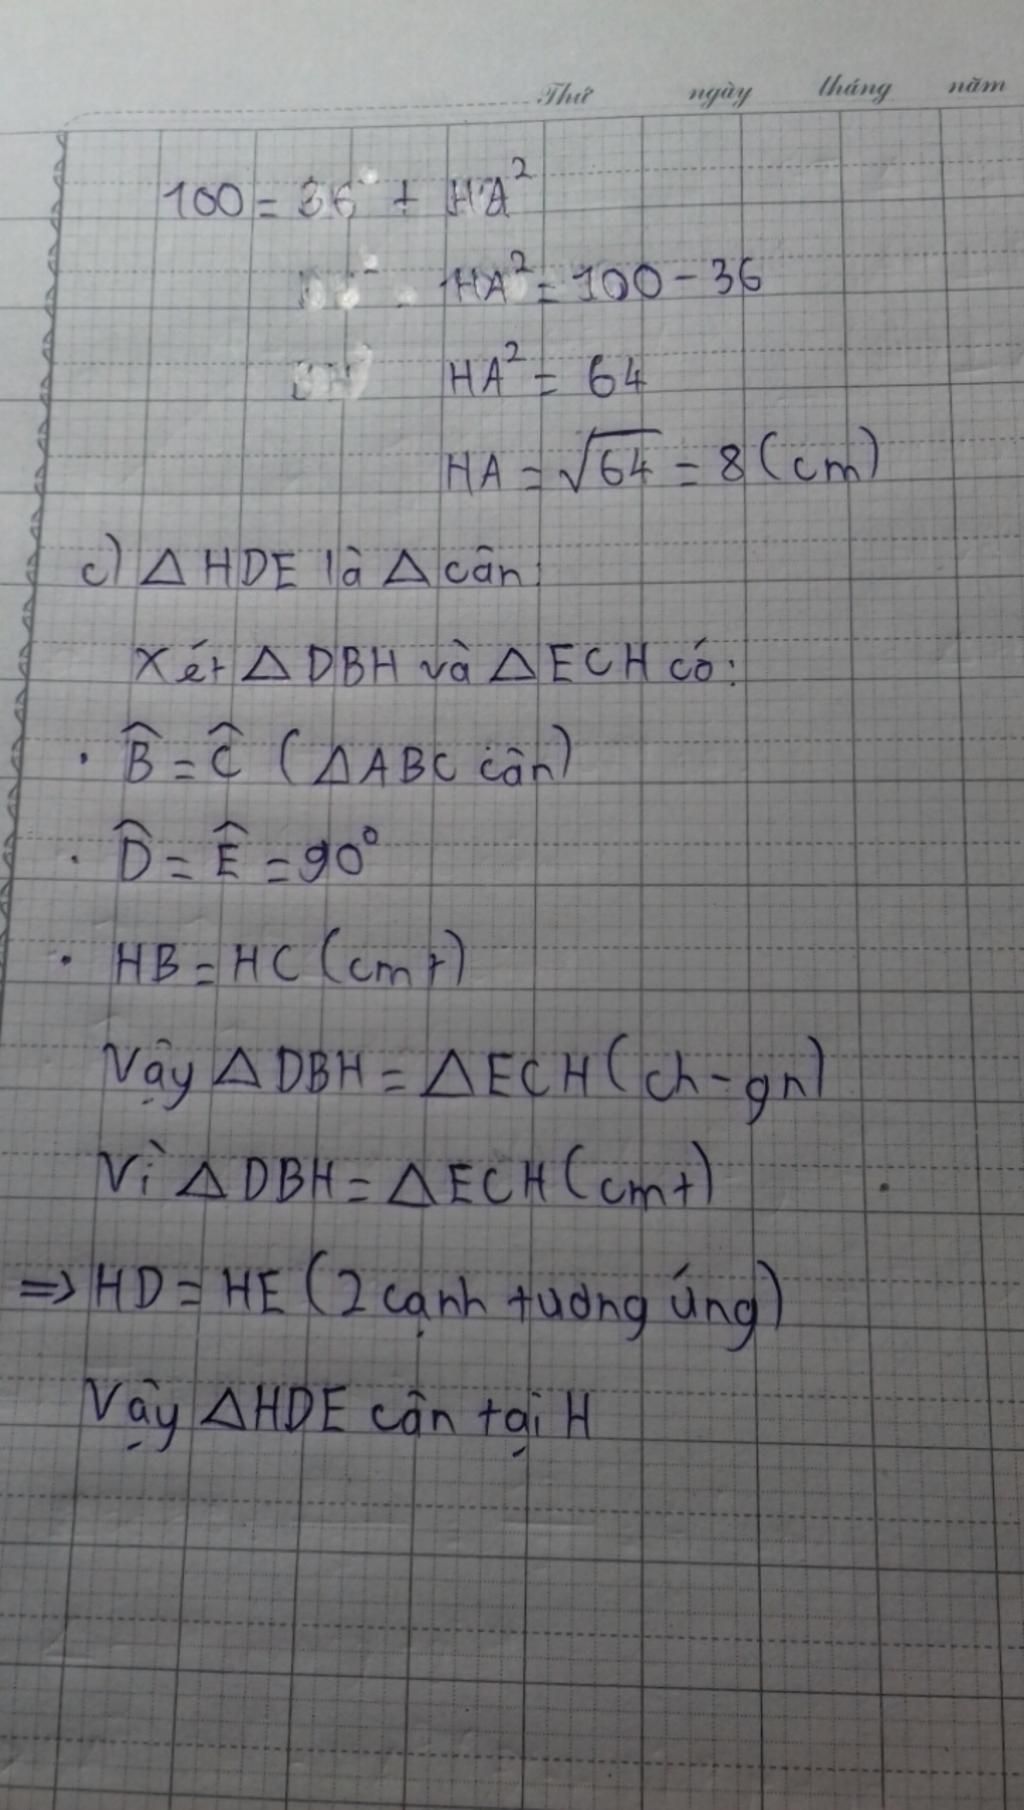 Thứ ngày tháng năm
100 = 36 + HA²
HA² = 100 - 36
HA² = 64
HA = √64 = 8 (cm)
c) △ HDE là △ cân
Xét △ DBH và △ ECH có:
· B̂ = Ĉ (△ABC cân)
· D̂ = Ê = 90°
· HB = HC (cmt)
Vậy △ DBH = △ ECH (ch - gn)
Vì △ DBH = △ ECH (cmt)
=> HD = HE (2 cạnh tương ứng)
Vậy △HDE cân tại H